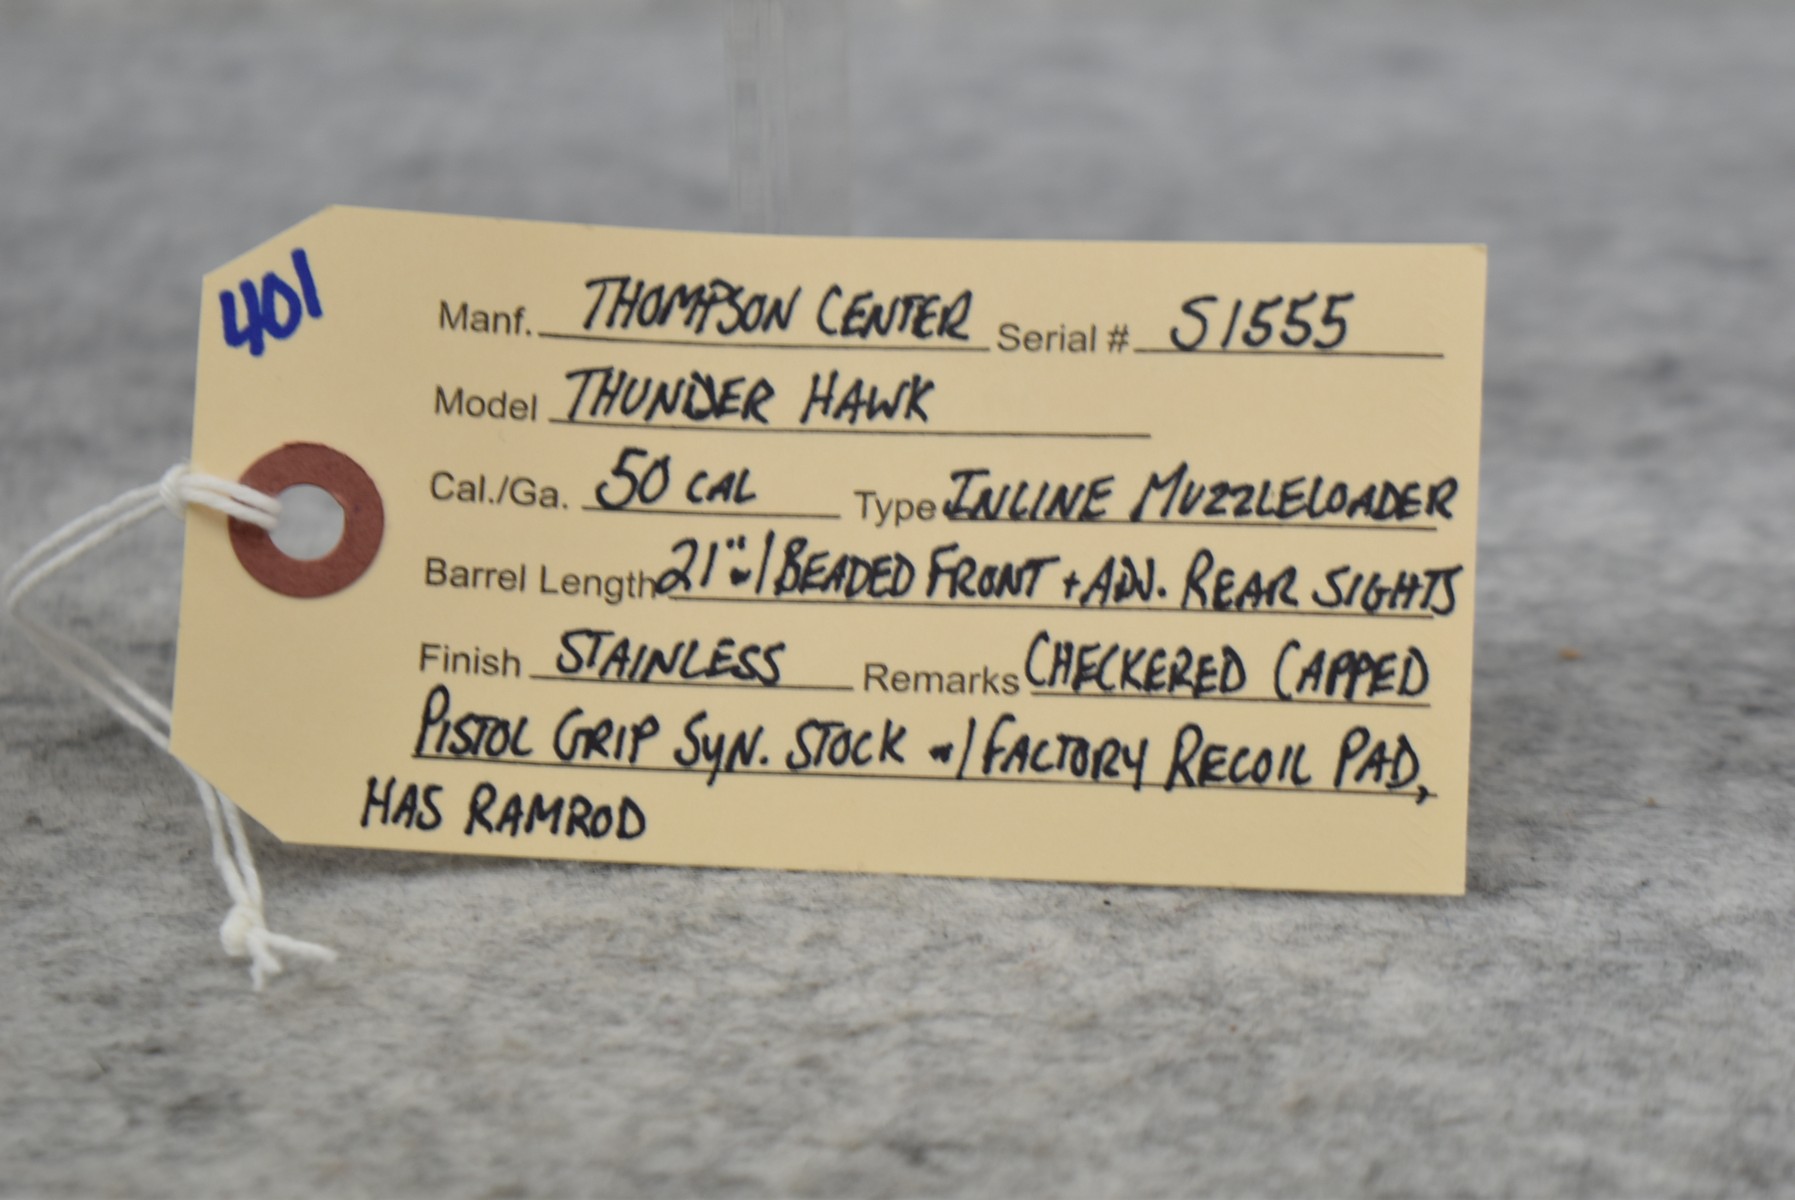 401
Manf. THOMPSON CENTER Serial # S1555
Model THUNDER HAWK
Cal./Ga. 50 CAL Type INLINE MUZZLELOADER
Barrel Length 21" w/ BEADED FRONT + ADJ. REAR SIGHTS
Finish STAINLESS Remarks CHECKERED CAPPED
PISTOL GRIP SYN. STOCK w/ FACTORY RECOIL PAD,
HAS RAMROD